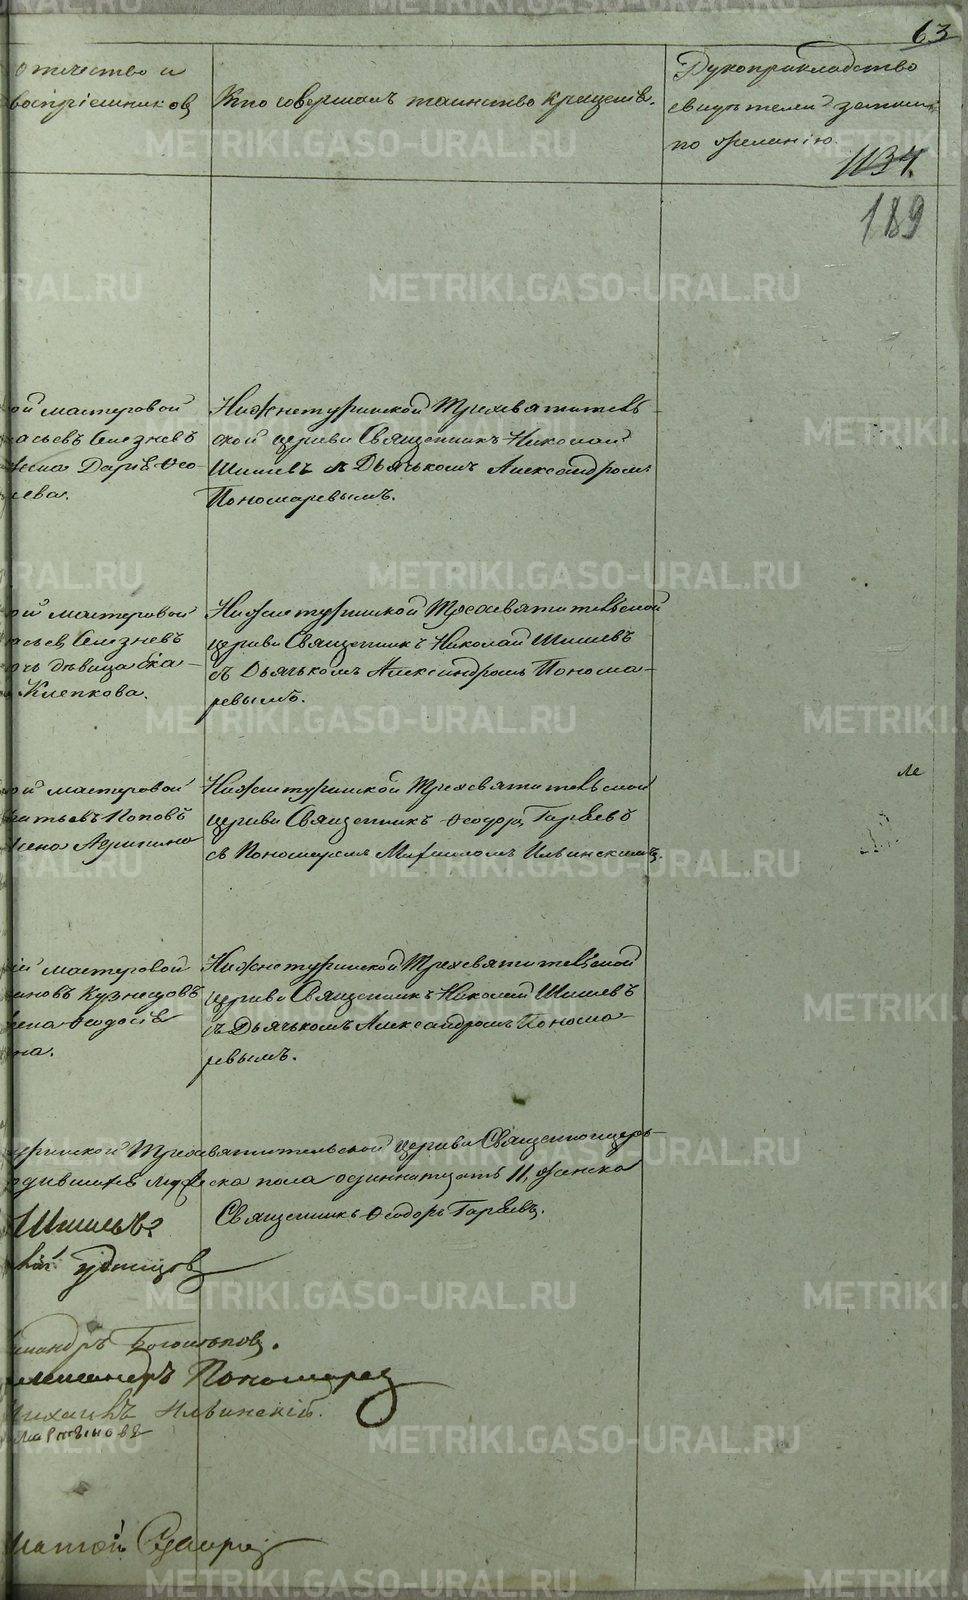 63
отчество и
воспрiемниковъ
Кто совершалъ таинство крещенiя.
Рукоприкладство
свидѣтелей записи
по желанiю.
1134.
189
ой мастеровой
асьевъ Селезневъ
Дарiя Ѳео-
ева.
Нижнетуринской Трехсвятитель-
ской церкви Священникъ Николай
Шишевъ съ Дьячькомъ Александромъ
Пономаревымъ.
ой мастеровой
асьевъ Селезневъ
очь дѣвица
Клепкова.
Нижнетуринской Трехсвятительской
церкви Священникъ Николай Шишевъ
съ Дьячькомъ Александромъ Понома-
ревымъ.
ой мастеровой
Поповъ
жена Агрипина
Нижнетуринской Трехсвятительской
церкви Священникъ Ѳеодоръ Гаряевъ
съ Пономаремъ Михаиломъ Ильинскимъ.
ле
iй мастеровой
ановъ Кузнецовъ
жена Ѳеодосiя
на.
Нижнетуринской Трехсвятительской
церкви Священникъ Николай Шишевъ
съ Дьячькомъ Александромъ Понома-
ревымъ.
уринской Трехсвятительской церкви Священноцерь-
одившихся мужеска пола одиннатцать 11, женска
Шишевъ
Священникъ Ѳеодоръ Гаряевъ.
Удинцов
андръ
лександръ Пономарев
ихаилъ Ильинскiй.
Мартынова
METRIKI.GASO-URAL.RU